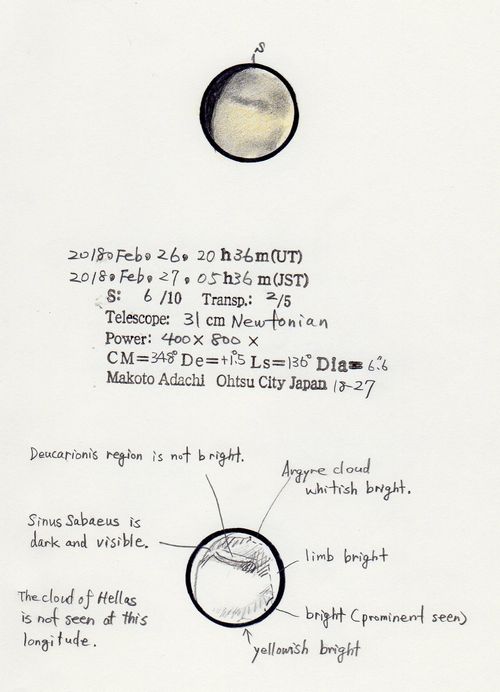 S
2018. Feb. 26. 20 h 36 m (UT)
2018. Feb. 27. 05 h 36 m (JST)
S: 6 /10 Transp.: 2/5
Telescope: 31 cm Newtonian
Power: 400× 800 ×
CM=348° De=+1.°5 Ls=136° Dia= 6."6
Makoto Adachi Ohtsu City Japan 18-27
Deucarionis region is not bright.
Argyre cloud
whitish bright.
Sinus Sabaeus is
dark and visible.
limb bright
The cloud of Hellas
is not seen at this
longitude.
bright (prominent seen)
yellowish bright